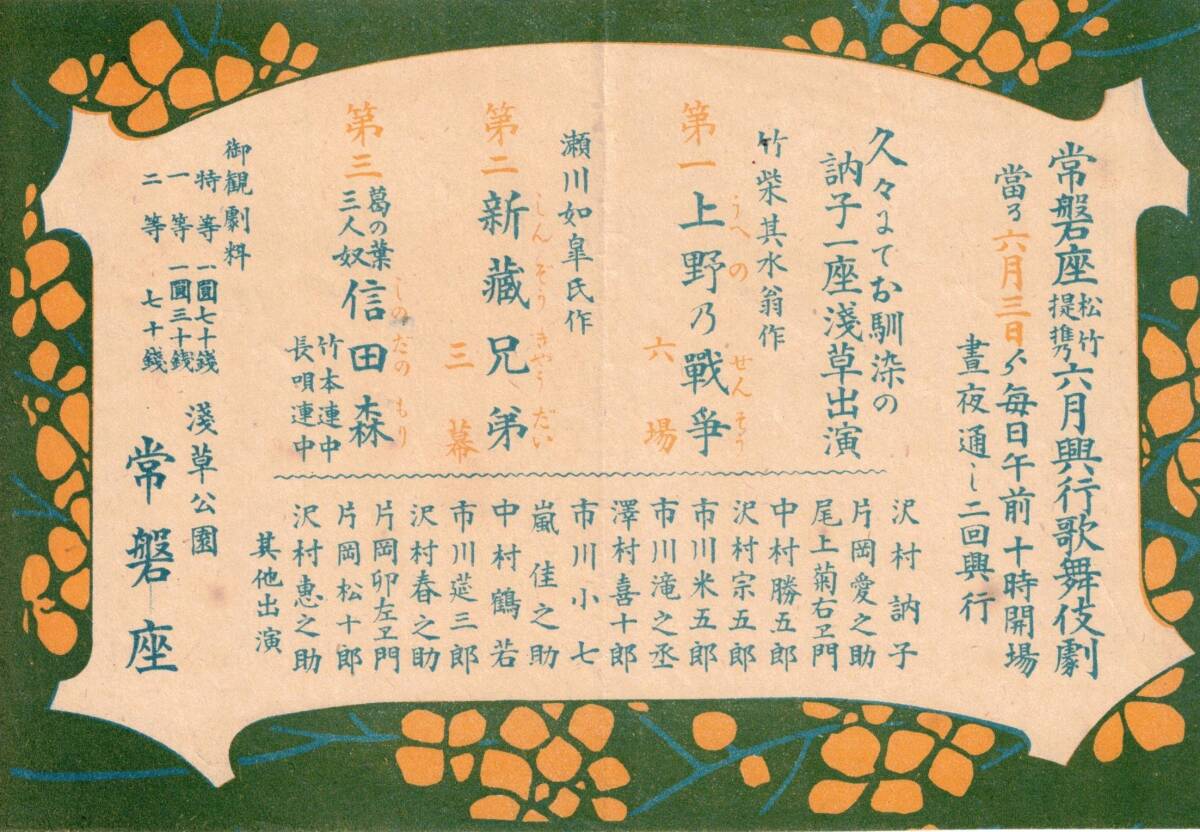 常磐座 松竹提携乃 六月興行歌舞伎劇
當ル六月三日ゟ毎日午前十時開場
晝夜通し二回興行
久々にてお馴染の
訥子一座淺草出演
竹柴其水翁作
第一 上野乃戰爭 六場
うへの せんそう
瀬川如皐氏作
第二 新藏兄弟 三幕
しんぞうきやうだい
第三 葛の葉 三人奴 信田森
しのだのもり
竹本連中
長唄連中
沢村訥子
片岡愛之助
尾上菊右ヱ門
中村勝五郎
沢村宗五郎
市川米五郎
市川滝之丞
澤村喜十郎
市川小七
嵐佳之助
中村鶴若
市川莚三郎
沢村春之助
片岡卯左ヱ門
片岡松十郎
沢村惠之助
其他出演
御観劇料
特等 一圓七十錢
一等 一圓三十錢
二等 七十錢
淺草公園
常磐座